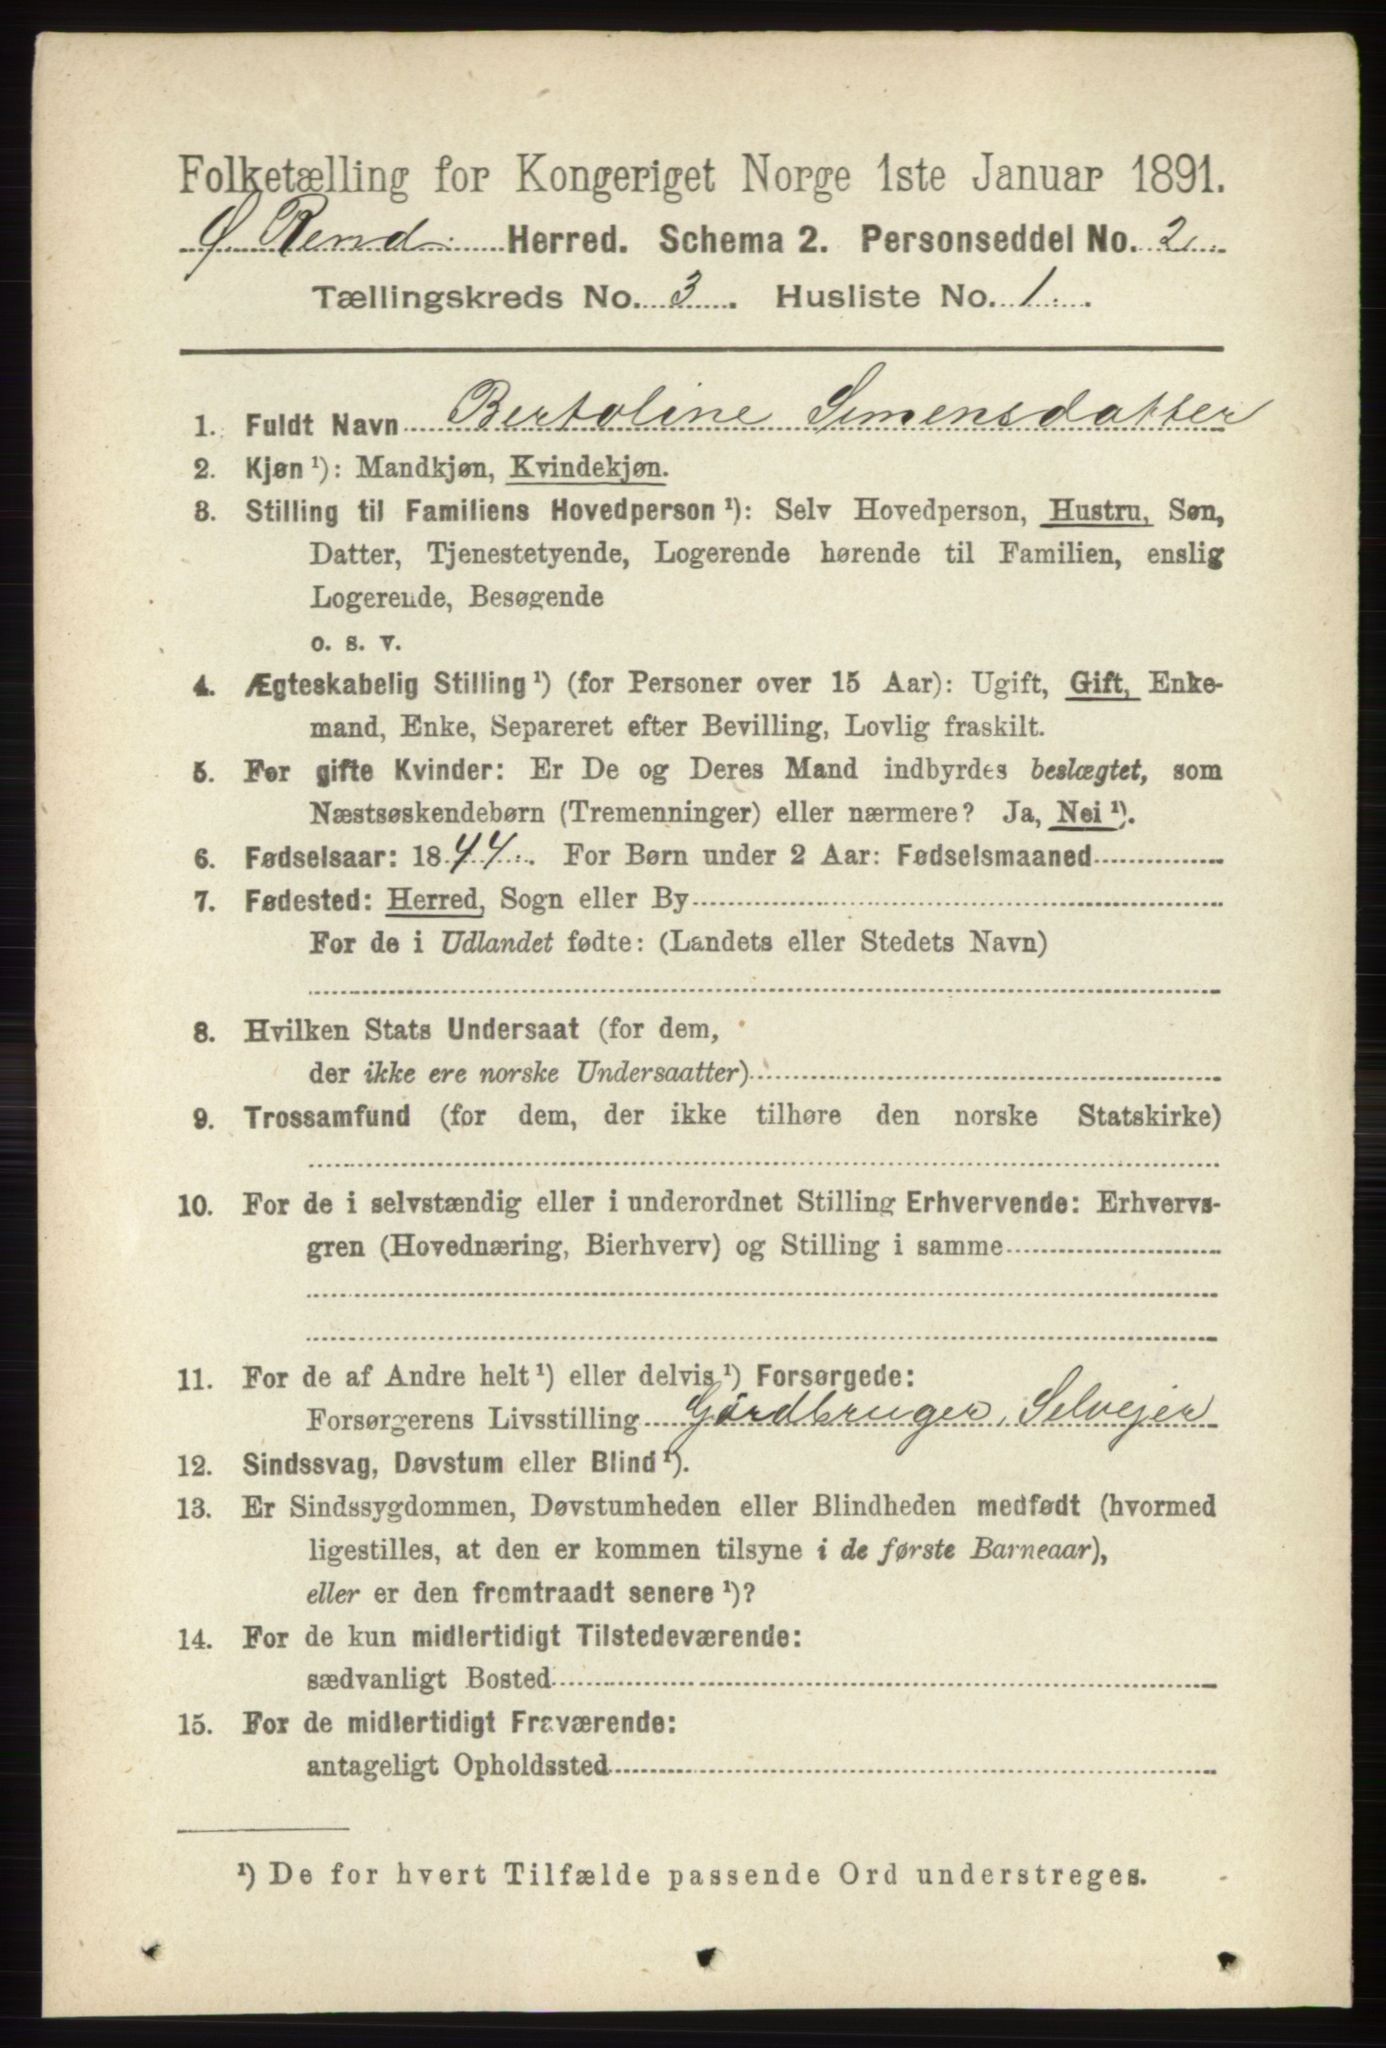 Folketælling for Kongeriget Norge 1ste Januar 1891.
Ø Rend. Herred. Schema 2. Personseddel No. 2
Tællingskreds No. 3. Husliste No. 1.
1. Fuldt Navn Bertoline Simensdatter
2. Kjøn ¹): Mandkjøn, Kvindekjøn.
3. Stilling til Familiens Hovedperson ¹): Selv Hovedperson, Hustru, Søn,
Datter, Tjenestetyende, Logerende hørende til Familien, enslig
Logerende, Besøgende
o. s. v.
4. Ægteskabelig Stilling ¹) (for Personer over 15 Aar): Ugift, Gift, Enke-
mand, Enke, Separeret efter Bevilling, Lovlig fraskilt.
5. For gifte Kvinder: Er De og Deres Mand indbyrdes beslægtet, som
Næstsøskendebørn (Tremenninger) eller nærmere? Ja, Nei ¹).
6. Fødselsaar: 1844. For Børn under 2 Aar: Fødselsmaaned
7. Fødested: Herred, Sogn eller By
For de i Udlandet fødte: (Landets eller Stedets Navn)
8. Hvilken Stats Undersaat (for dem,
der ikke ere norske Undersaatter)
9. Trossamfund (for dem, der ikke tilhøre den norske Statskirke)
10. For de i selvstændig eller i underordnet Stilling Erhvervende: Erhvervs-
gren (Hovednæring, Bierhverv) og Stilling i samme
11. For de af Andre helt ¹) eller delvis ¹) Forsørgede:
Forsørgerens Livsstilling Gårdbruger, Selvejer
12. Sindssvag, Døvstum eller Blind ¹).
13. Er Sindssygdommen, Døvstumheden eller Blindheden medfødt (hvormed
ligestilles, at den er kommen tilsyne i de første Barneaar),
eller er den fremtraadt senere ¹)?
14. For de kun midlertidigt Tilstedeværende:
sædvanligt Bosted
15. For de midlertidigt Fraværende:
antageligt Opholdssted
¹) De for hvert Tilfælde passende Ord understreges.